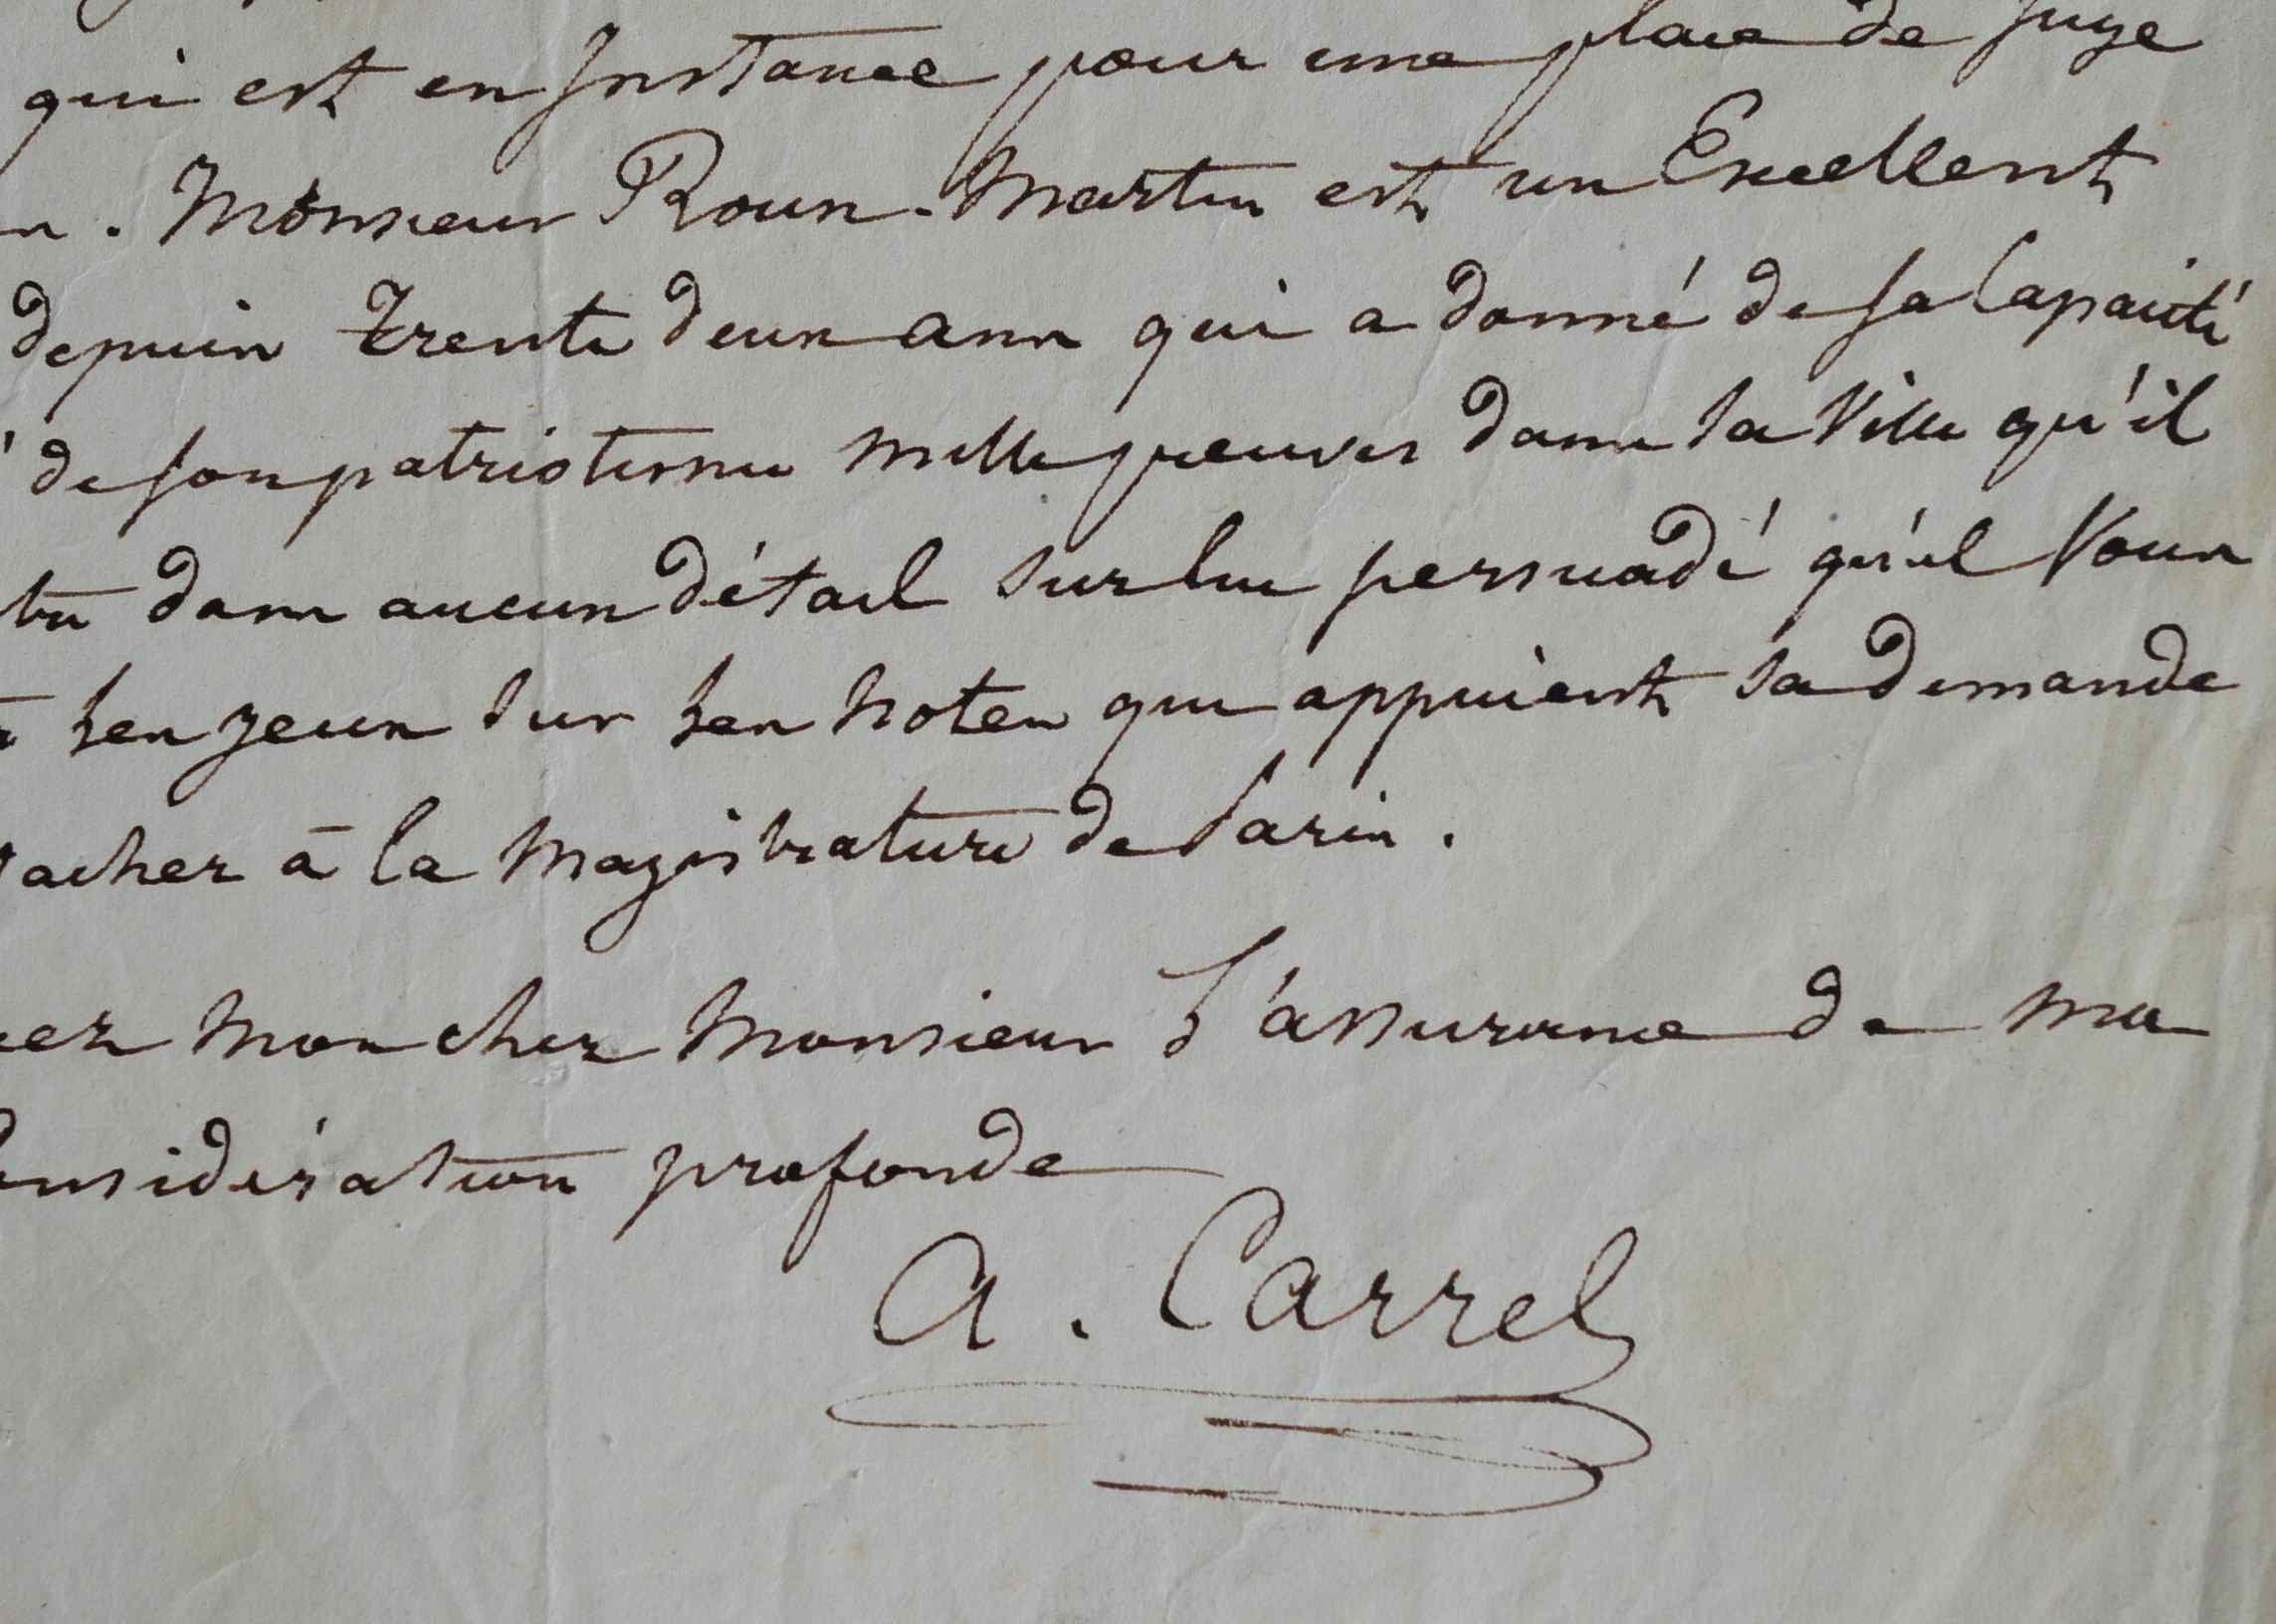 qui est en Instance pour une place de Juge
n. Monsieur Roux-Martin est un Excellent
depuis trente deux ans qui a donné de sa Capacité
de son patriotisme mille preuves dans la Ville qu'il
dans aucun détail sur lui persuadé qu'il Vous
les yeux sur les notes qui appuient sa demande
acher à la Magistrature de Paris.
ez mon cher Monsieur L'assurance de ma
onsidération profonde
A. Carrel